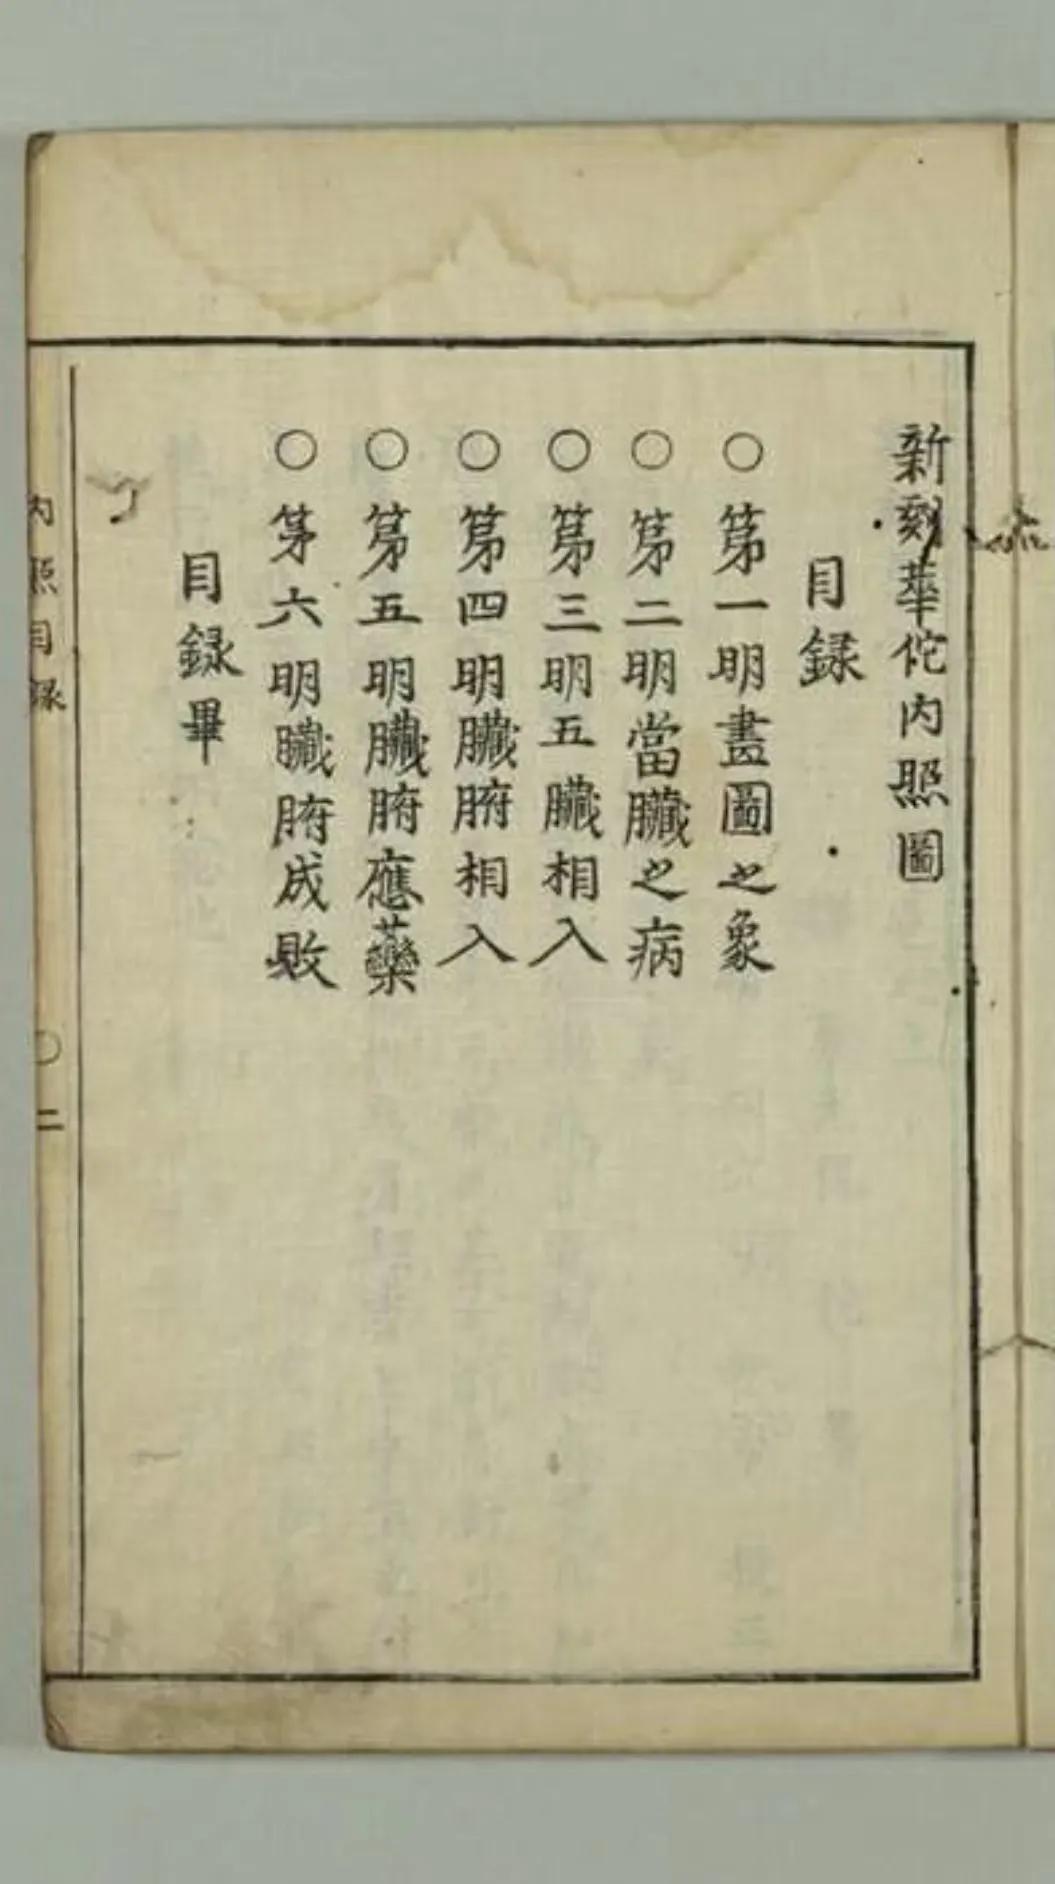 新刻華佗內照圖
目録
○第一明畫圖之象
○第二明當臟之病
○第三明五臟相入
○第四明臟腑相入
○第五明臟腑應藥
○第六明臟腑成敗
目録畢
內照目録
○二